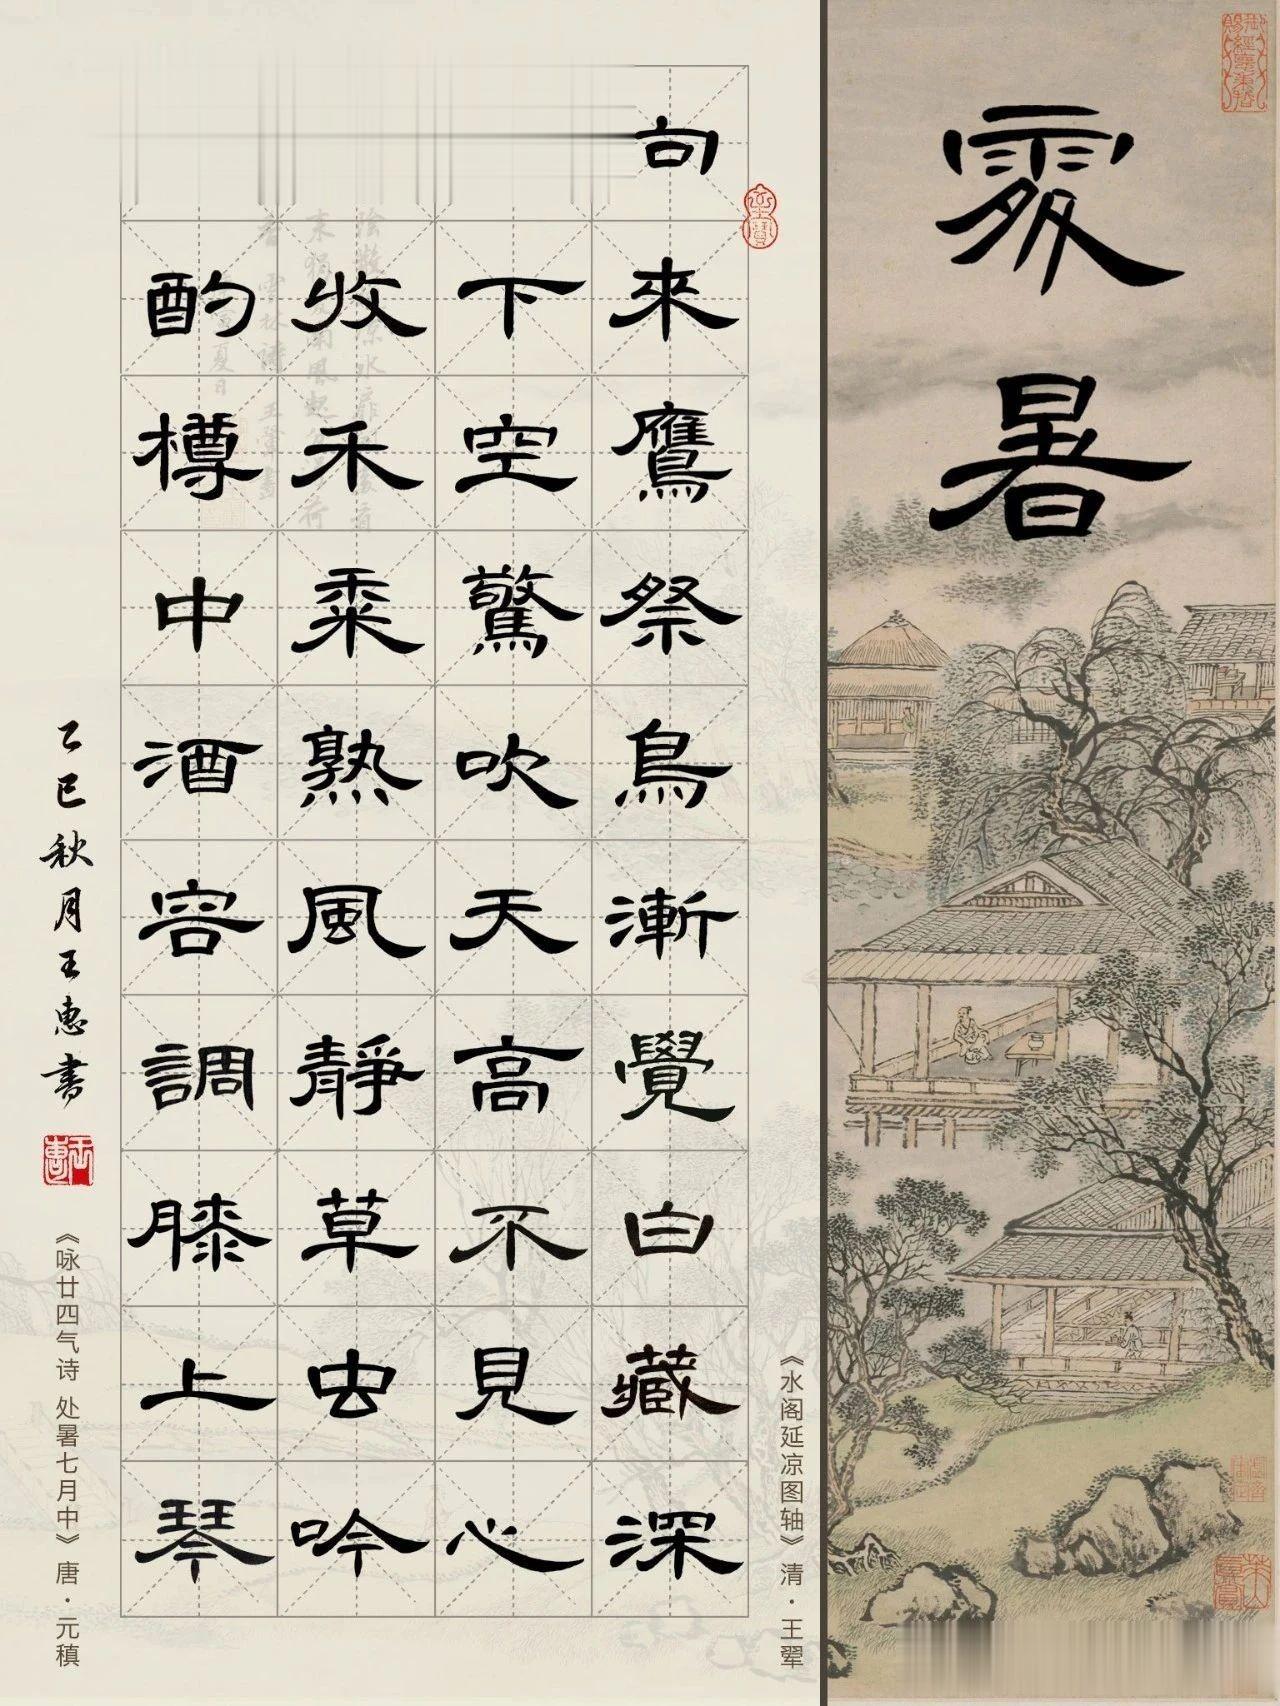 處暑
向來鷹祭鳥漸覺白藏深
下空驚吹天高不見心
收禾黍熟風靜草虫吟
酌樽中酒容調膝上琴
乙巳秋月王惠書
《咏廿四气诗 处暑七月中》唐·元稹
《水阁延凉图轴》清·王翚